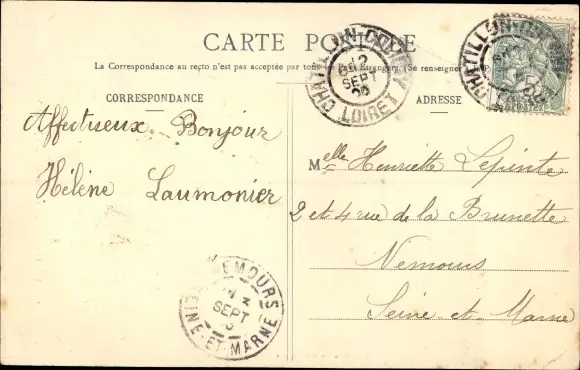 CARTE POSTALE
La Correspondance au recto n'est pas acceptée par tous les Pays Étrangers. (Se renseigner
CORRESPONDANCE
ADRESSE
Affectueux Bonjour
Hélène Laumonier
Melle Henriette Lepinte
2 et 4 rue de la Brunette
Nemours
Seine et Marne
CHATILLON-COLI
12
SEPT
LOIRET
CHATILLON
EMOURS
SEPT
EINE-ET-MARNE